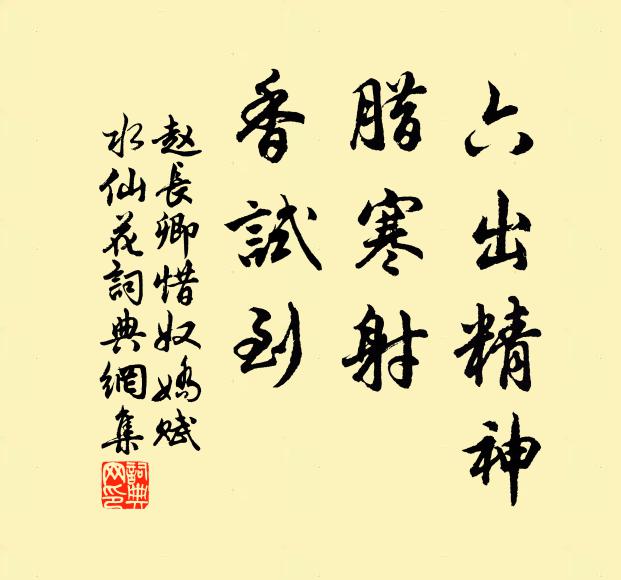 六出精神
腊寒射
香試到
赵長卿惜奴嬌賦
水仙花詞典網集
詞典
网印